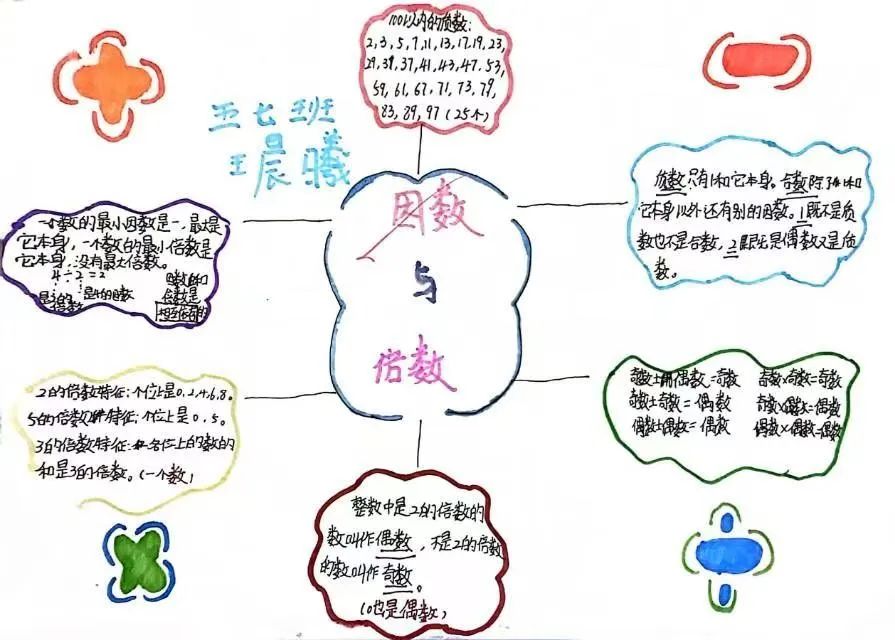 100以内的质数:
2,3,5,7,11,13,17,19,23,
29,31,37,41,43,47,53,
59,61,67,71,73,79,
83,89,97(25个)
五七班
王晨曦
因数
与
倍数
质数只有1和它本身。合数除了1和
它本身以外还有别的因数。1既不是质
数也不是合数,2既是偶数又是质
数。
一个数的最小因数是一,最大是
它本身,一个数的最小倍数是
它本身,没有最大倍数。
4÷2=2
是2的倍数
是4的因数
因数和
倍数是
相互依存的
2的倍数特征:个位上是0,2,4,6,8。
5的倍数特征:个位上是0,5。
3的倍数特征:各位上的数的
和是3的倍数。(一个数)
奇数±偶数=奇数 奇数×奇数=奇数
奇数±奇数=偶数 奇数×偶数=偶数
偶数±偶数=偶数 偶数×偶数=偶数
整数中是2的倍数的
数叫作偶数,不是2的倍数
的数叫作奇数。
(0也是偶数)